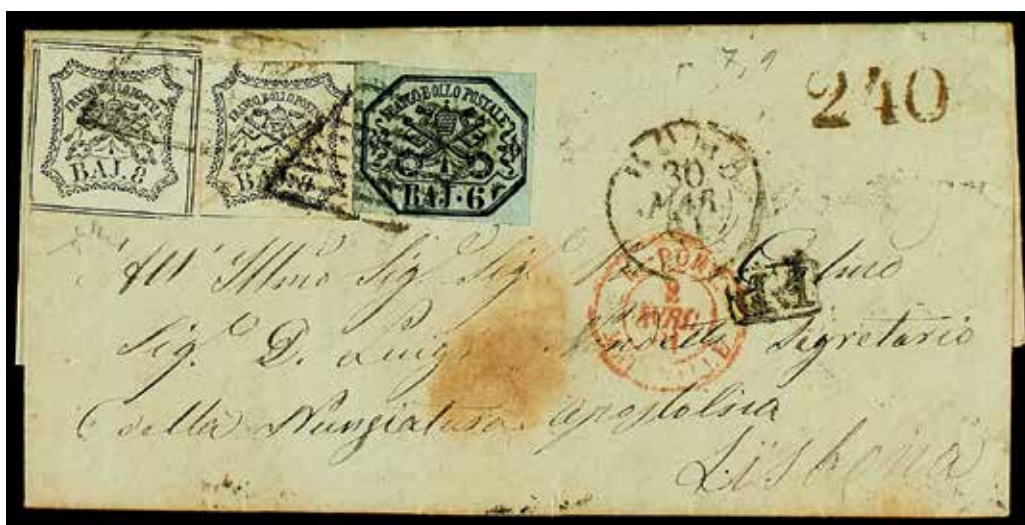 7,9
240
FRANCO BOLLO POSTALE
BAJ. 8
FRANCO BOLLO POSTALE
BAJ. 8
FRANCO BOLLO POSTALE
BAJ·6
ROMA
30
MAR
E. PONT.
2
AVRIL
P.D.
All' Illmo Sig. Sig.
Sig. D. Luigi Segretario
della Nunziatura apostolica
Lisbona